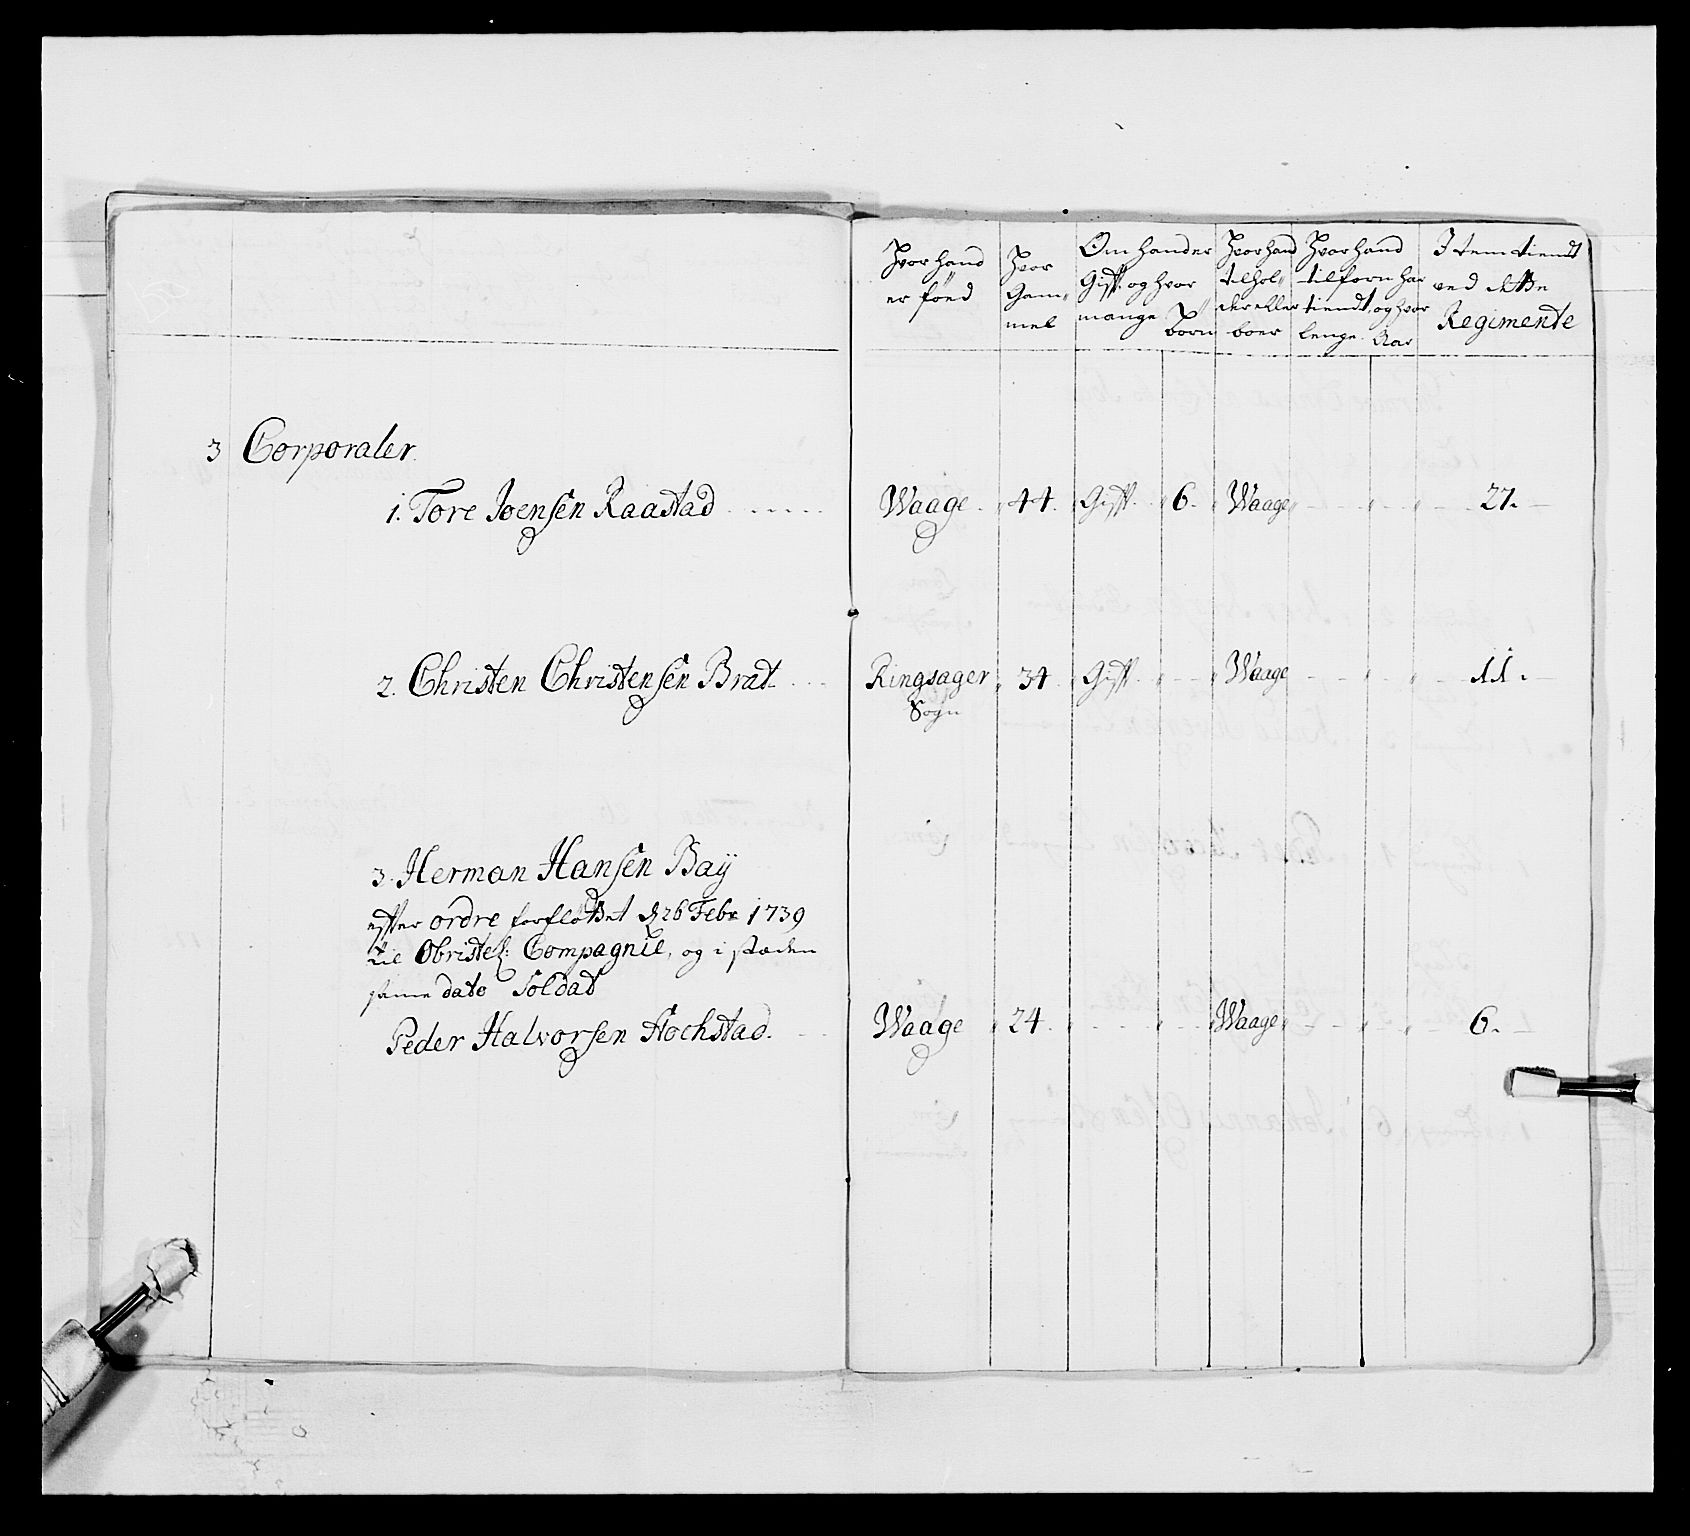 Hvor hand er föed
Hvor Gam= mel
Om hand er Gift. og hvor mange Börn
Hvor hand tilhol= der eller boer
Hvor hand tilforn har tiendt, og hvor lenge. Aar
Item tiendt ved dette Regimente
3 Corporaler
1. Tore Joensen Raastad Waage 44. Gift 6. Waage 27.
2. Christen Christensen Brat Ringsager 34 Gift Waage 11.
Sogn
3. Herman Hansen Baÿ
efter ordre forflöttet d 26 Febr 1739
til Obristel: Compagnie, og i stæden
samme dato Soldat
Peder Halvorsen Hochstad. Waage 24. Waage 6.